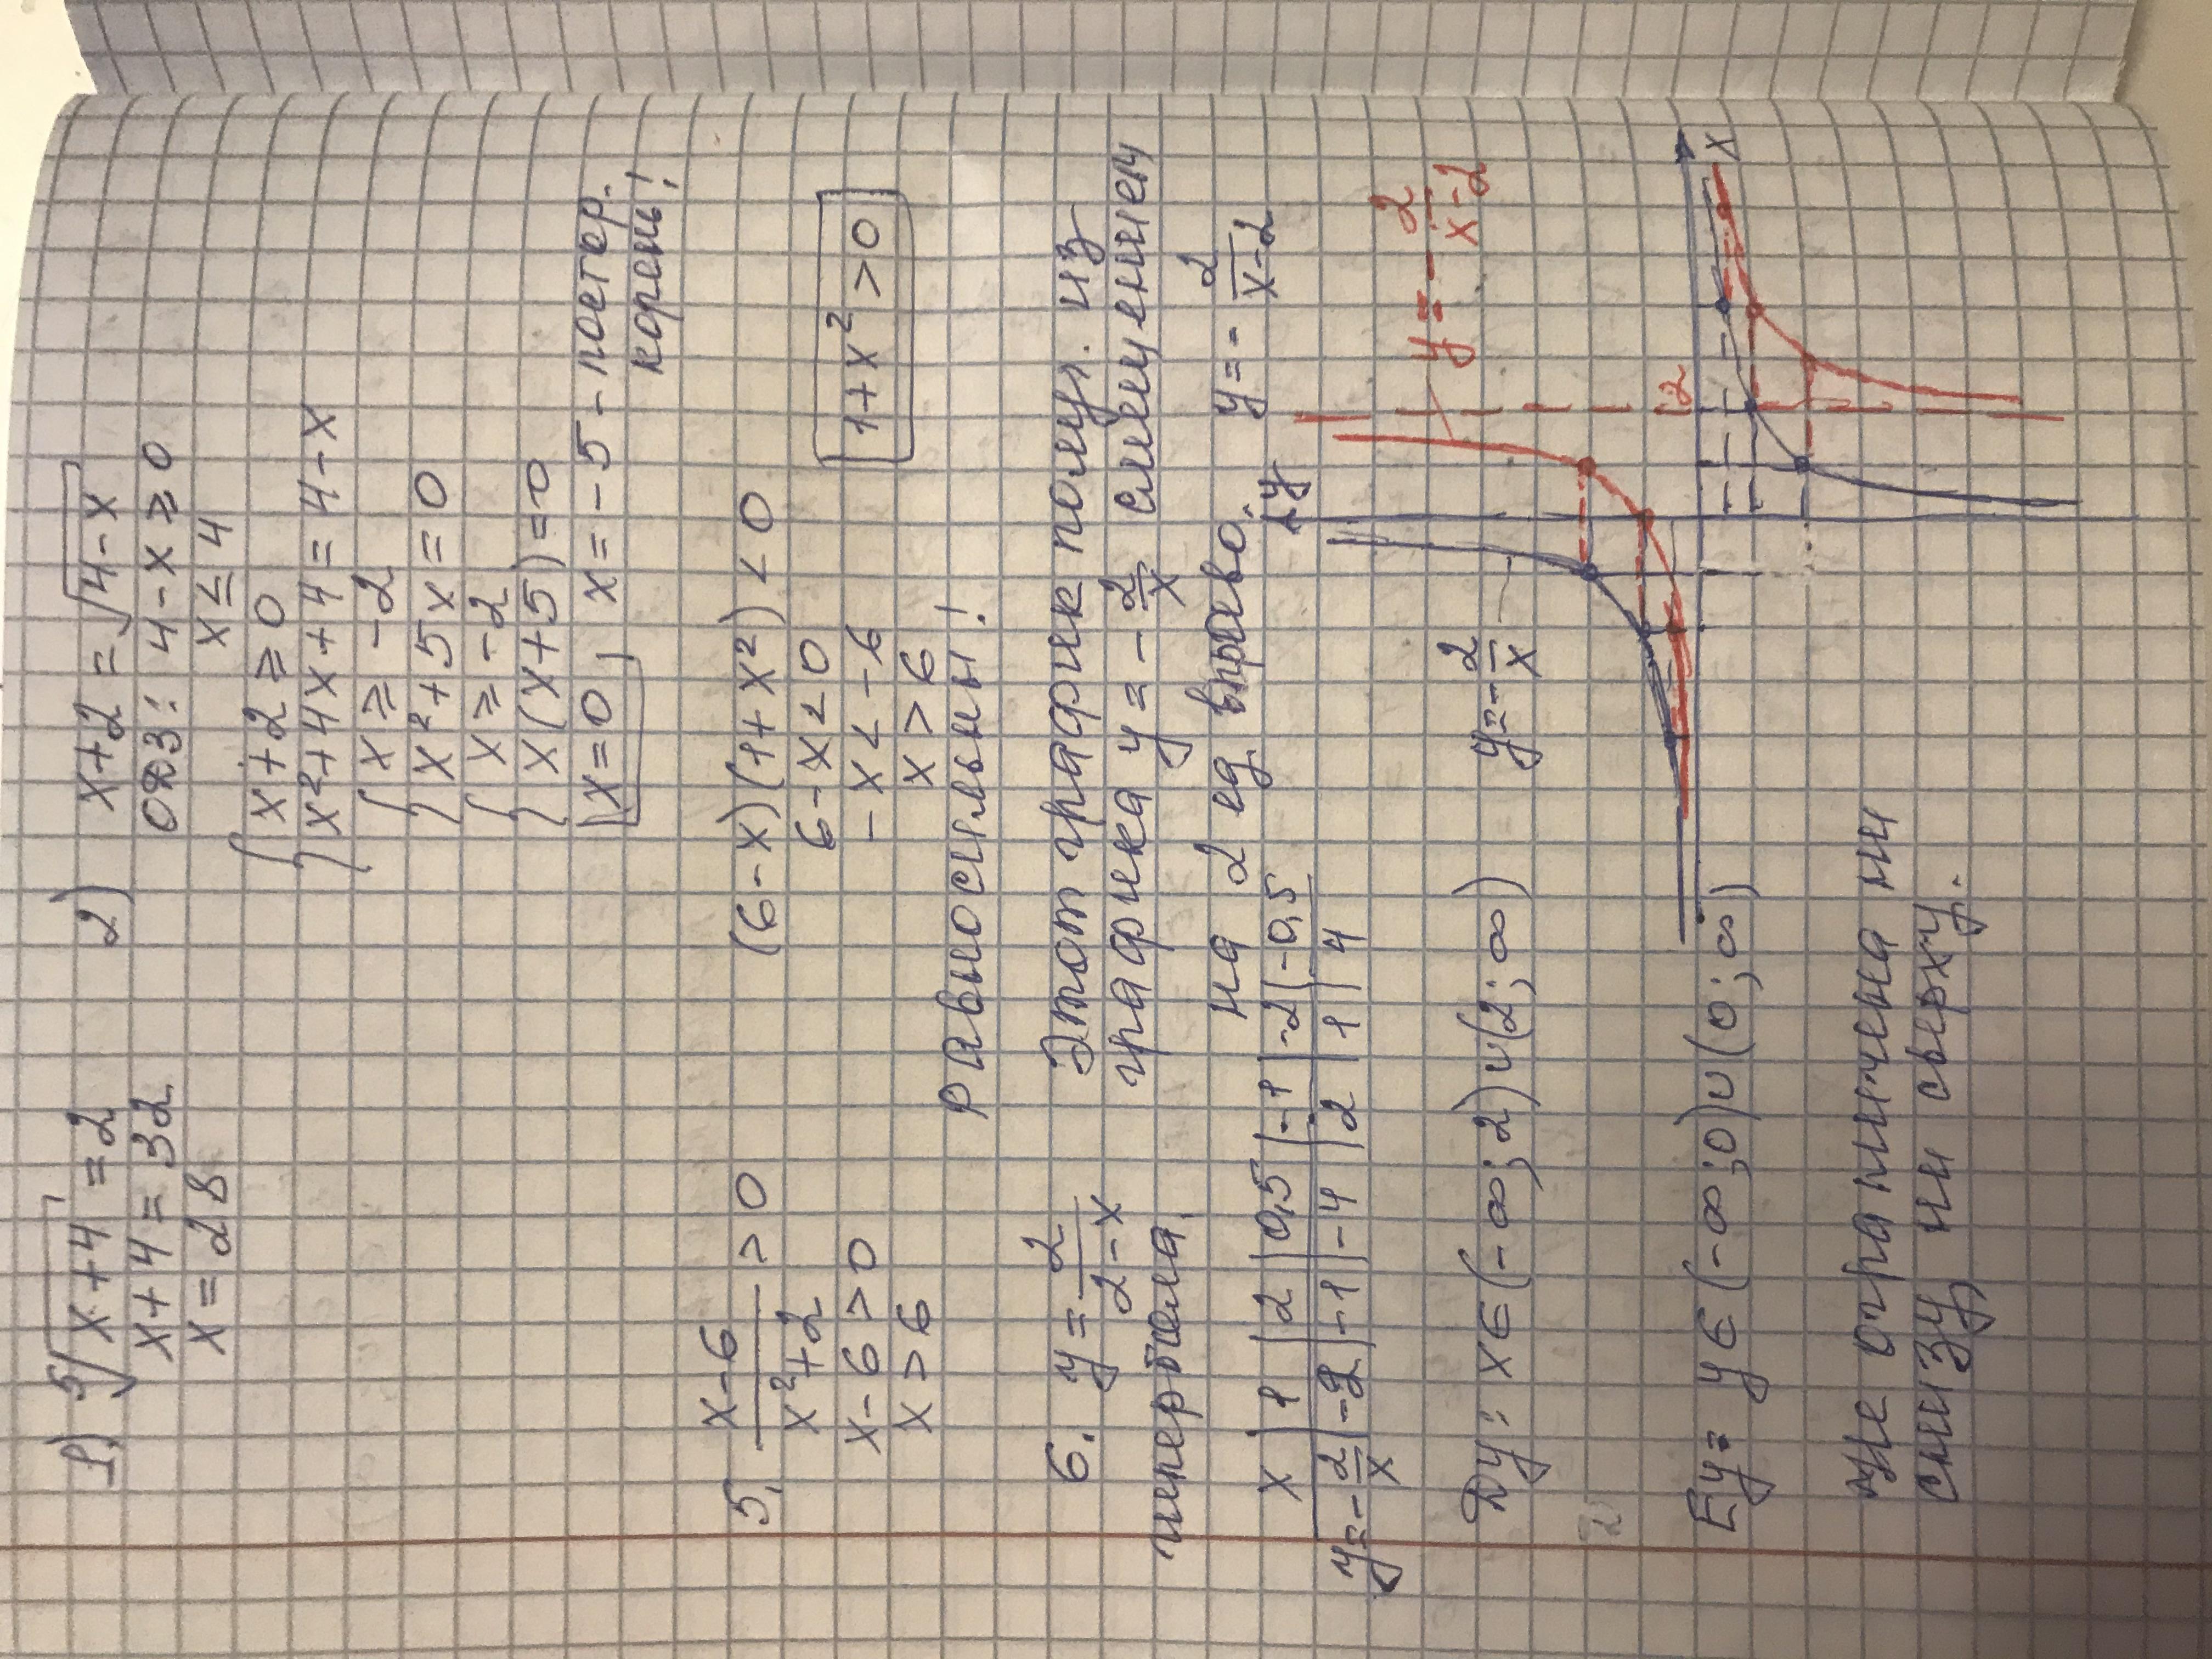 1) ⁵√(x+4) = 2
x+4 = 32
x = 28
2) x+2 = √(4-x)
ОДЗ: 4-x ≥ 0
x ≤ 4
{ x+2 ≥ 0
x²+4x+4 = 4-x
{ x ≥ -2
x²+5x = 0
{ x ≥ -2
x(x+5) = 0
x = 0, x = -5 - постор.
корень!
5. (x-6)/(x²+2) > 0
x-6 > 0
x > 6
(6-x)(1+x²) < 0
6-x < 0
-x < -6
x > 6
1+x² > 0
равносильны!
6. y = 2/(2-x) Этот график получ. из
гипербола. графика y = -2/x смещением
на 2 ед. вправо. y = -2/(x-2)
x | 1 | 2 | 0,5 | -1 | -2 | -0,5
y = -2/x | -2 | -1 | -4 | 2 | 1 | 4
y
y = -2/(x-2)
Dy: x ∈ (-∞; 2) ∪ (2; ∞)
y = -2/x
2
x
Ey = y ∈ (-∞; 0) ∪ (0; ∞)
Не ограничена ни
снизу, ни сверху.